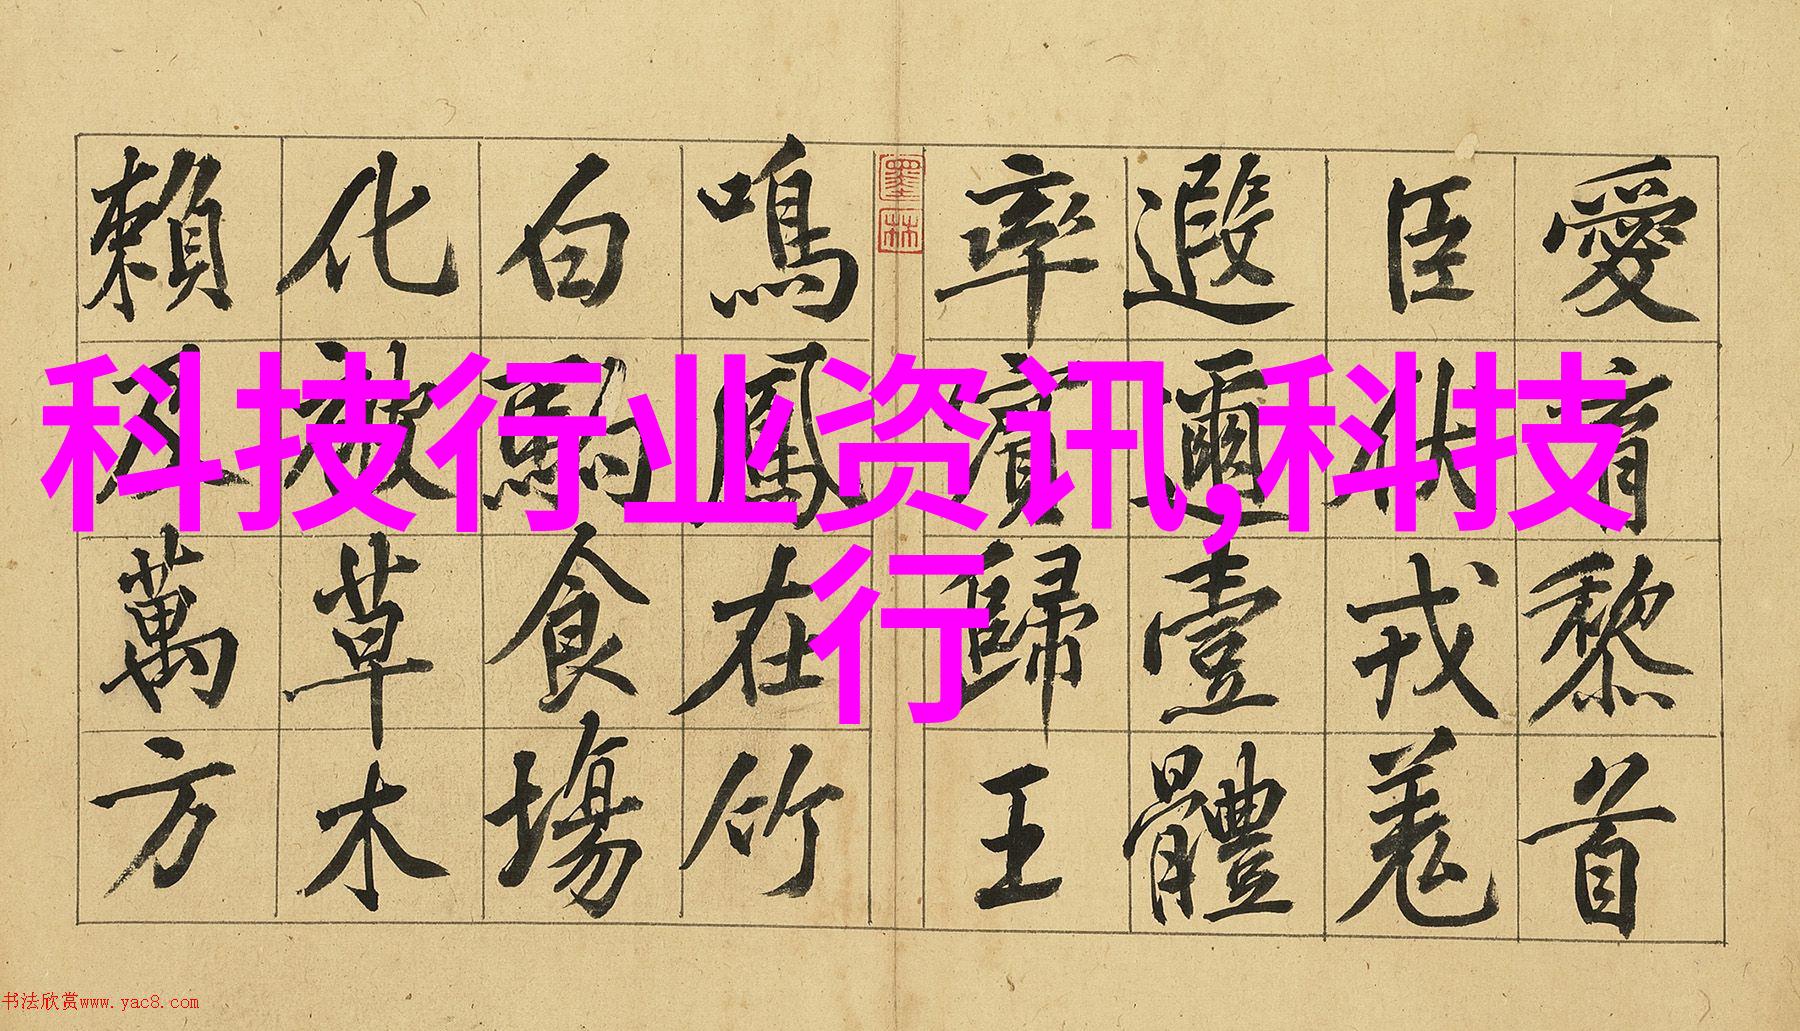 愛育黎首
臣伏戎羌
遐邇壹體
率賓歸王
墨林
鳴鳳在竹
白駒食場
化被草木
賴及萬方
科技行业资讯,科技
行
书法欣赏www.yac8.com